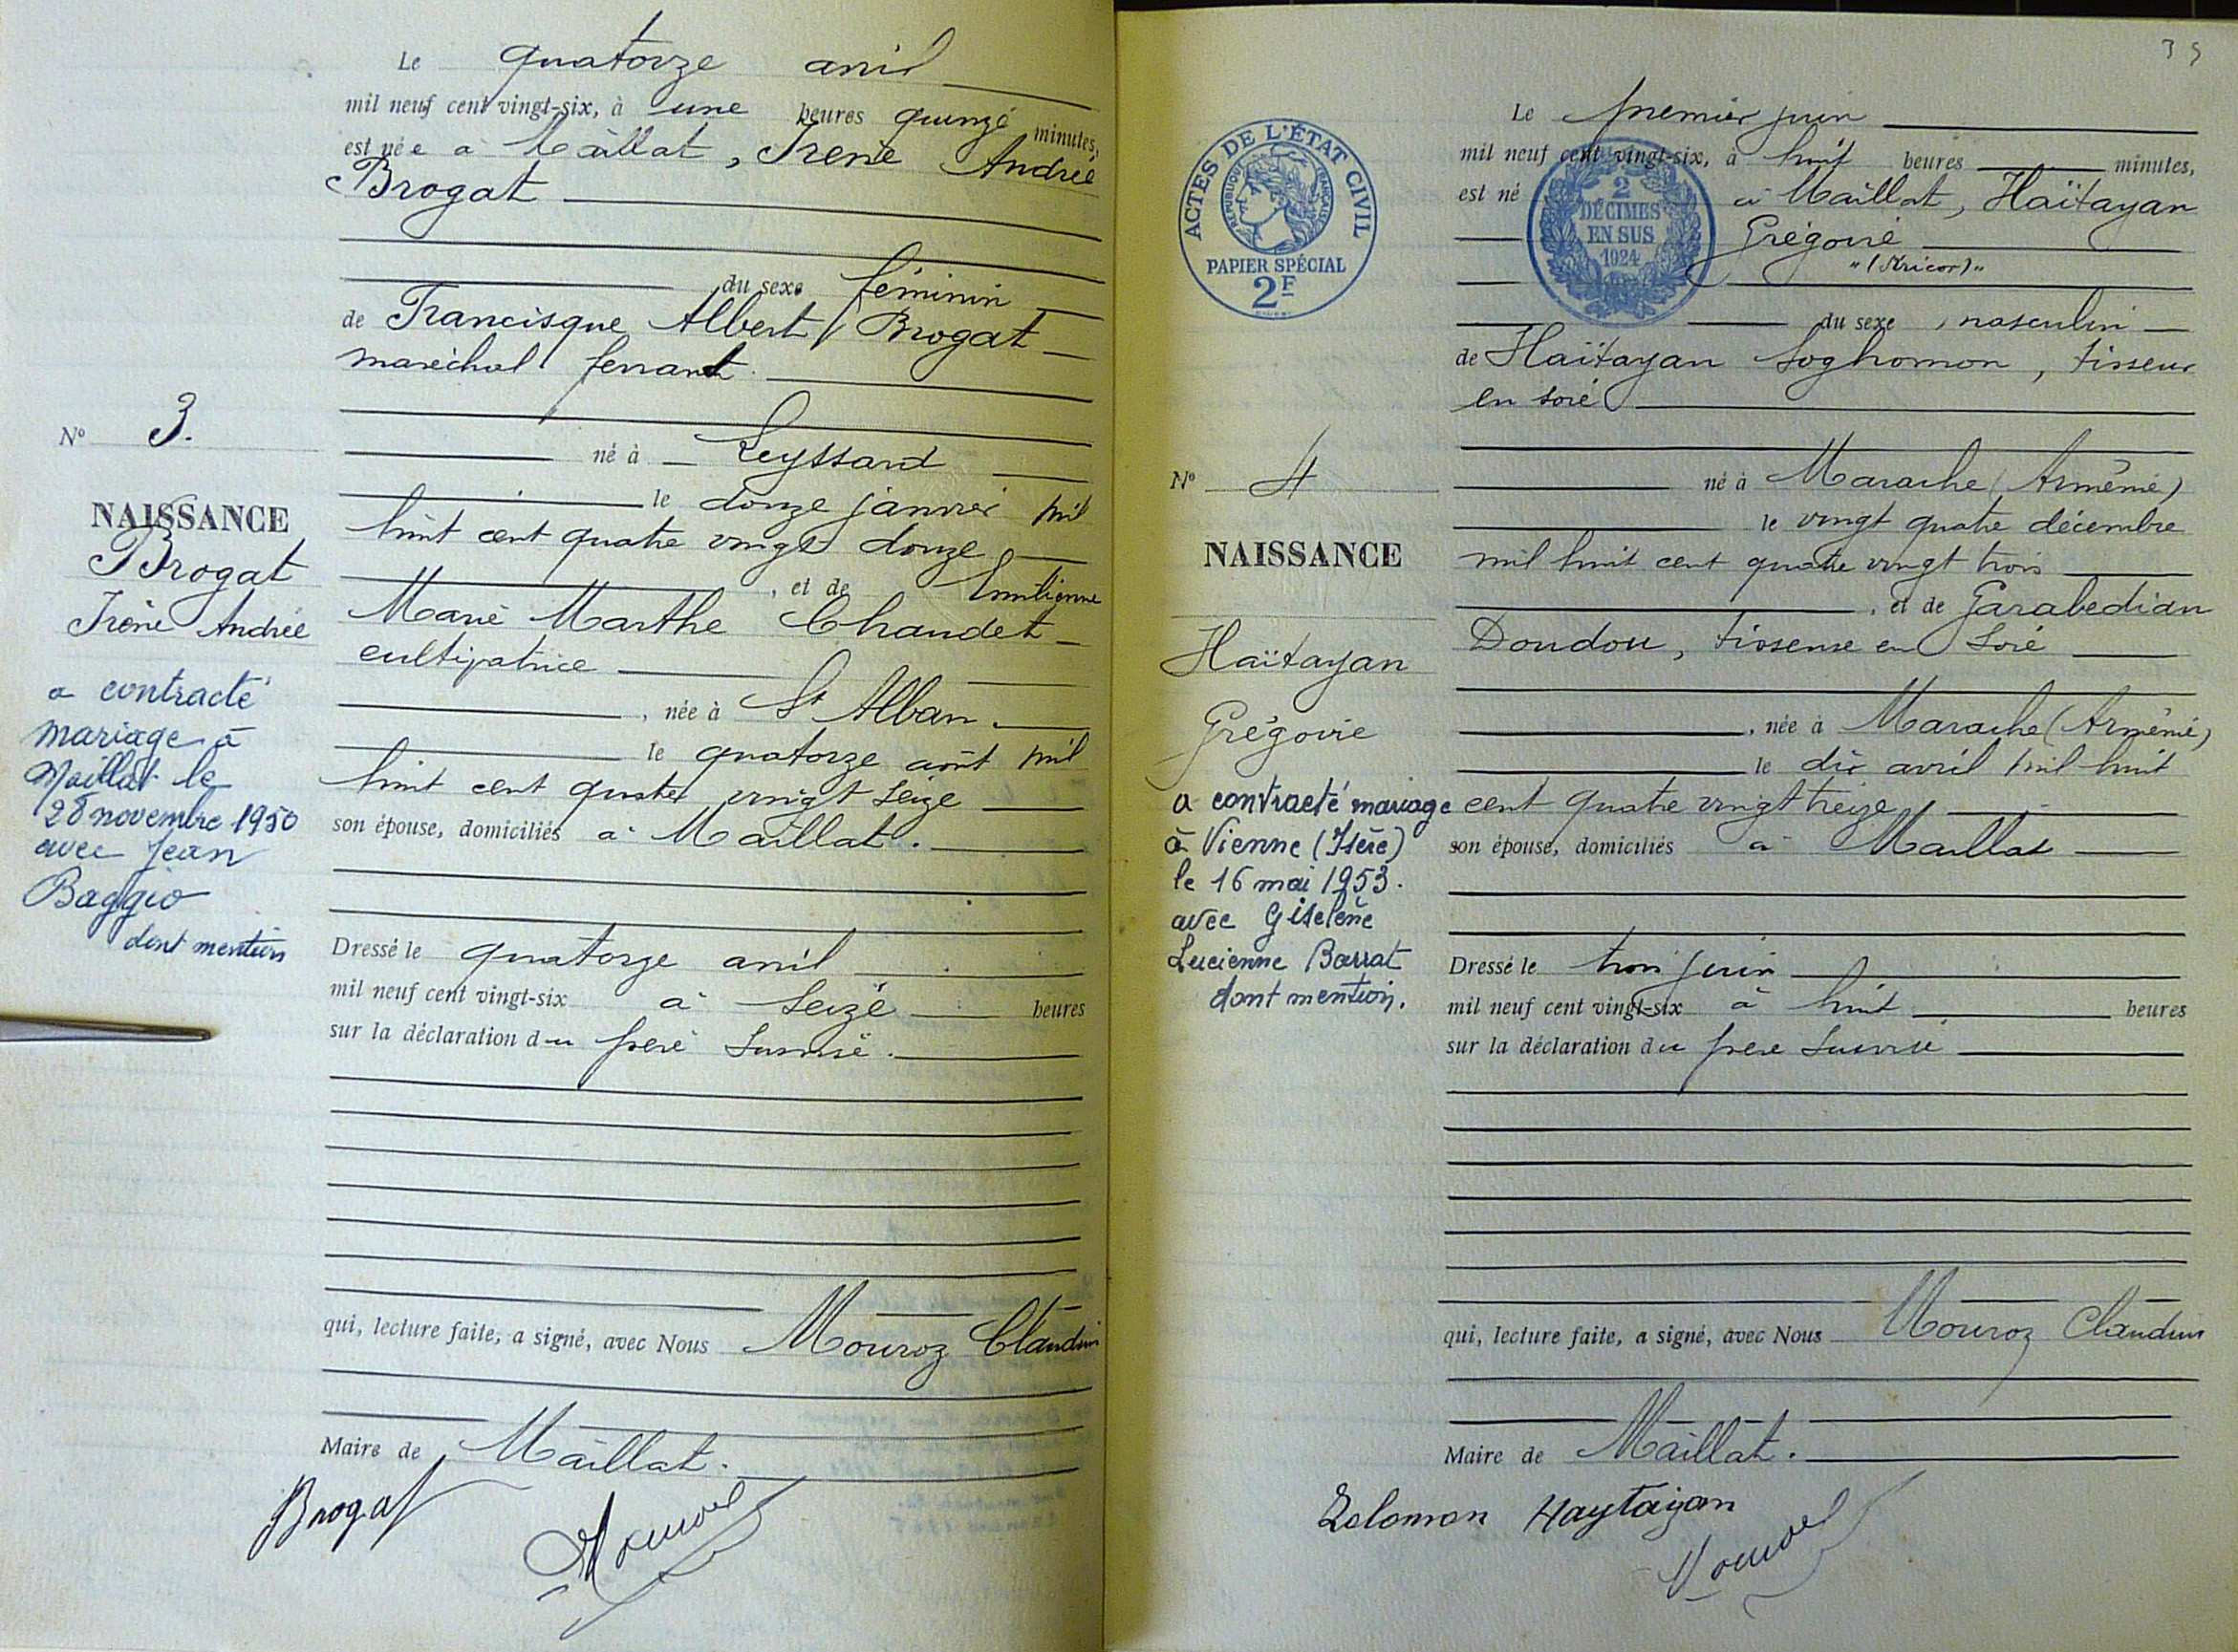 Le quatorze avril
mil neuf cent vingt-six, à une heures quinze minutes,
est née à Maillat, Irène Andrée
Brogat
du sexe féminin
de Francisque Albert Brogat
maréchal ferrant
né à Leyssard
le douze janvier mil
huit cent quatre vingt douze
, et de Emilienne
Marie Marthe Chaudet
cultivatrice
, née à St Alban.
le quatorze août mil
huit cent quatre vingt seize
son épouse, domiciliés à Maillat.
Dressé le quatorze avril
mil neuf cent vingt-six à seize heures
sur la déclaration du père susvisé.
qui, lecture faite, a signé, avec Nous Mouroz Claudius
Maire de Maillat.
Brogat
Mouroz
N° 3.
NAISSANCE
Brogat
Irène Andrée
a contracté
mariage à
Maillat le
28 novembre 1950
avec Jean
Baggio
dont mention
35
ACTES DE L'ÉTAT CIVIL
RÉPUBLIQUE FRANÇAISE
PAPIER SPÉCIAL
2F
2
DÉCIMES
EN SUS
1924
Le premier juin
mil neuf cent vingt-six, à huit heures minutes,
est né à Maillat, Haïtayan
Grégoire
"(Kricor)"
du sexe masculin
de Haïtayan Soghomon, tisseur
en soie
né à Marache (Arménie)
le vingt quatre décembre
mil huit cent quatre vingt trois
, et de Garabedian
Doudou, tisseuse en soie
, née à Marache (Arménie)
le dix avril mil huit
cent quatre vingt treize
son épouse, domiciliés à Maillat
Dressé le trois juin
mil neuf cent vingt-six à huit heures
sur la déclaration du père susvisé
qui, lecture faite, a signé, avec Nous Mouroz Claudius
Maire de Maillat.
Solomon Haytaijan
Mouroz
N° 4
NAISSANCE
Haïtayan
Grégoire
a contracté mariage
à Vienne (Isère)
le 16 mai 1953.
avec Giselène
Lucienne Barrat
dont mention.